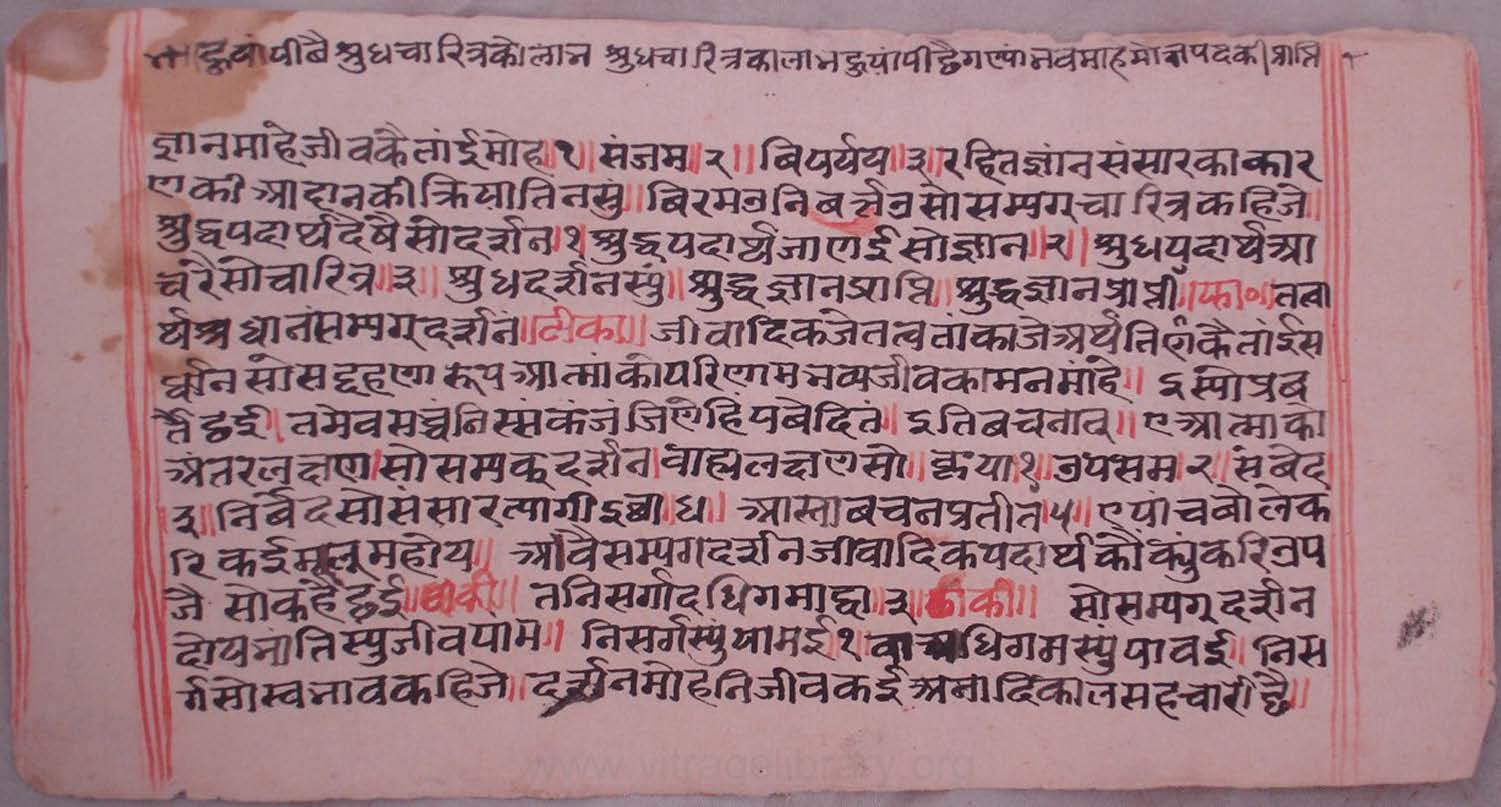 हुयां पीछै श्रुधचारित्रको लान श्रुधचारित्रका लान हुयां पीछै गण्या नवमाह मोक्षपदकी प्राप्ति
ज्ञानमांहे जीवकै तांई मोह॥१॥ संजम॥२॥ बिपर्यय॥३॥ रहित ज्ञांन संसारका कार
णकी आदानकी क्रिया तिनसुं॥ बिरमन निबर्त्तन सो सम्यग्चारित्र कहिजे॥
श्रुद्धपदार्थ देषै सो दर्शन॥१॥ श्रुद्धपदार्थ जाणई सो ज्ञान॥२॥ श्रुधपदार्थ आ
चरै सो चारित्र॥३॥ श्रुधदर्शनस्युं॥ श्रुद्धज्ञान प्राप्ति॥ श्रुद्धज्ञान प्राप्ती॥ फा०॥ तत्वा
र्थश्रधानं सम्यग्दर्शनं॥ टीका॥ जीवादिक जे तत्व तांका जे अर्थ तिणंकै तांई स
र्धान सो सद्दहणा रूप आत्मांको परिणाम भव्यजीवका मनमांहे॥ इस्यो प्रब
र्तै छई॥ तमेव सच्चं निस्संकं जं जिणेहिं पबेदितं॥ इति बचनात्॥ ए आत्माका
अंतर लक्षण॥ सो सम्यक् दर्शन॥ वाह्य लक्षण सो॥ क्रया॥१॥ उपसम॥२॥ संबेद
३॥ निर्बेद सो संसार त्यागी इच्छा॥४॥ आस्ता बचन प्रतीतं॥५॥ ए पांच बोले क
रि कई मूलुम होय॥ आवै सम्यगदर्शन जीवादिक पदार्थ कौ क्युं करि उप
जै सो कहै छई॥ टीकी॥ तनिसर्गादधिगमाद्वा॥३॥ टीकी॥ सो सम्यग्दर्शन
दोय भांति स्यु जीव पामै॥ निसर्ग स्युं पामई॥१॥ वा अधिगम स्युं पावई॥ निस
र्ग सो स्वभाव कहिजे॥ दर्शनमोहनि जीव कई अनादिकाल सहचारी छै॥
www.vitragelibrary.org